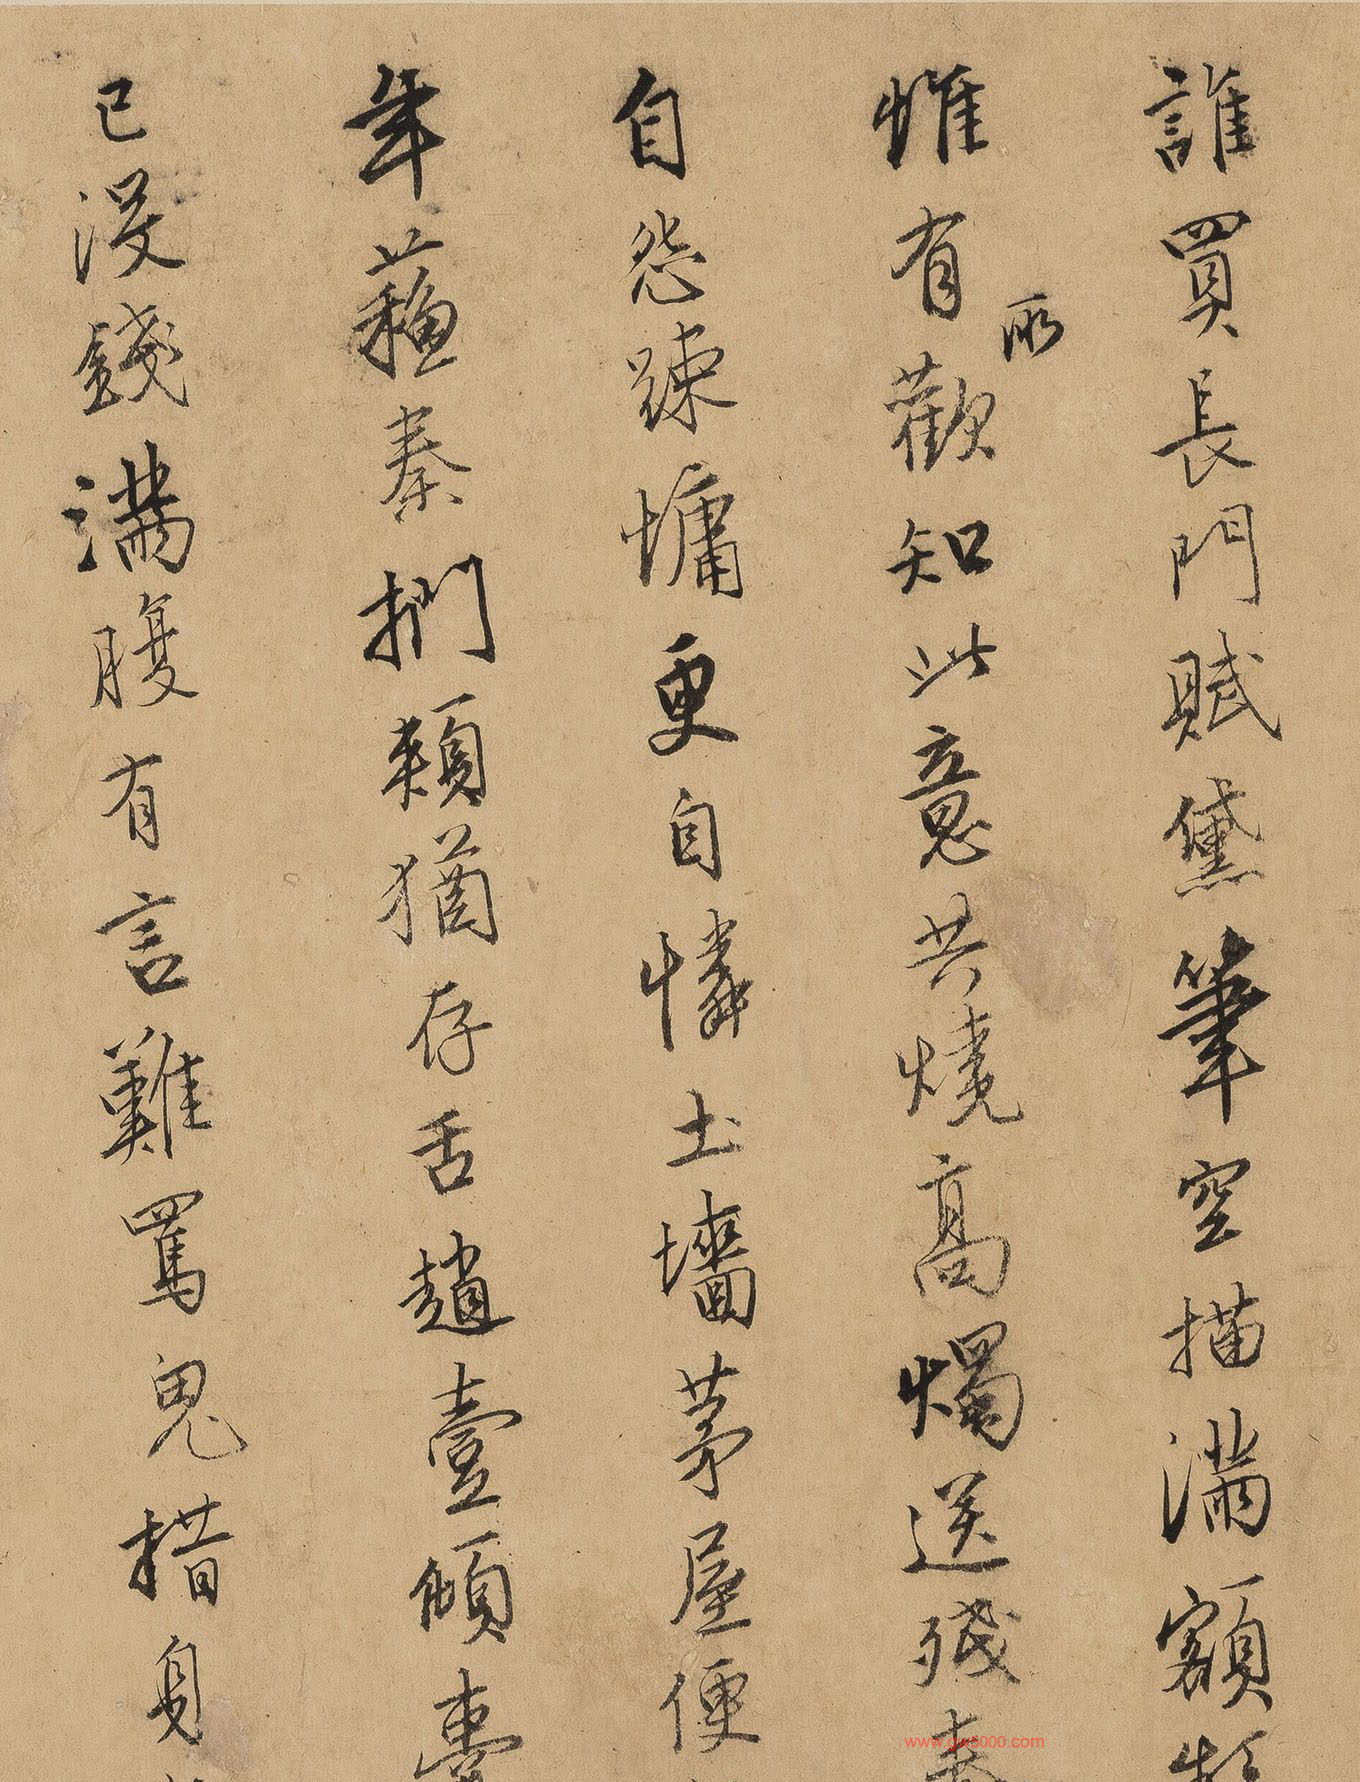 誰買長門賦黛筆空描滿額
惟有歡所知此意共燒高燭送殘春
自怨踈慵更自憐土墻茅屋便
年蘓秦捫頰猶存舌趙壹傾囊
已沒錢滿腹有言難罵鬼措身
www.gw5000.com